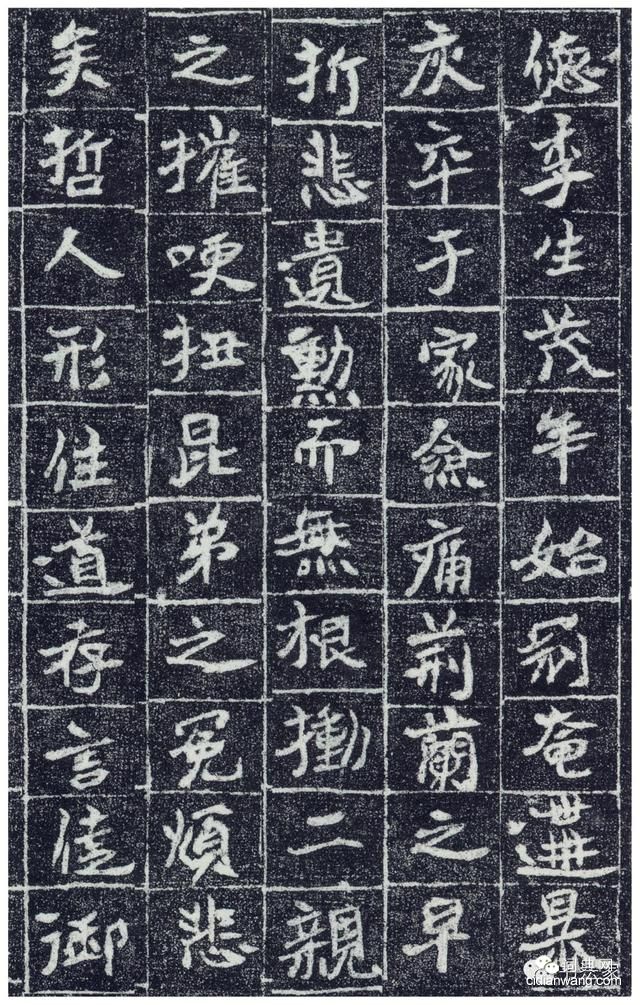 德李生茂年始奄遘暴
灰卒于家僉痛荆蘭之早
折悲遺勲而無根慟二親
之摧哽扭昆弟之冤煩悲
矣哲人形往道存言徒御
词典网
cidianwang.com